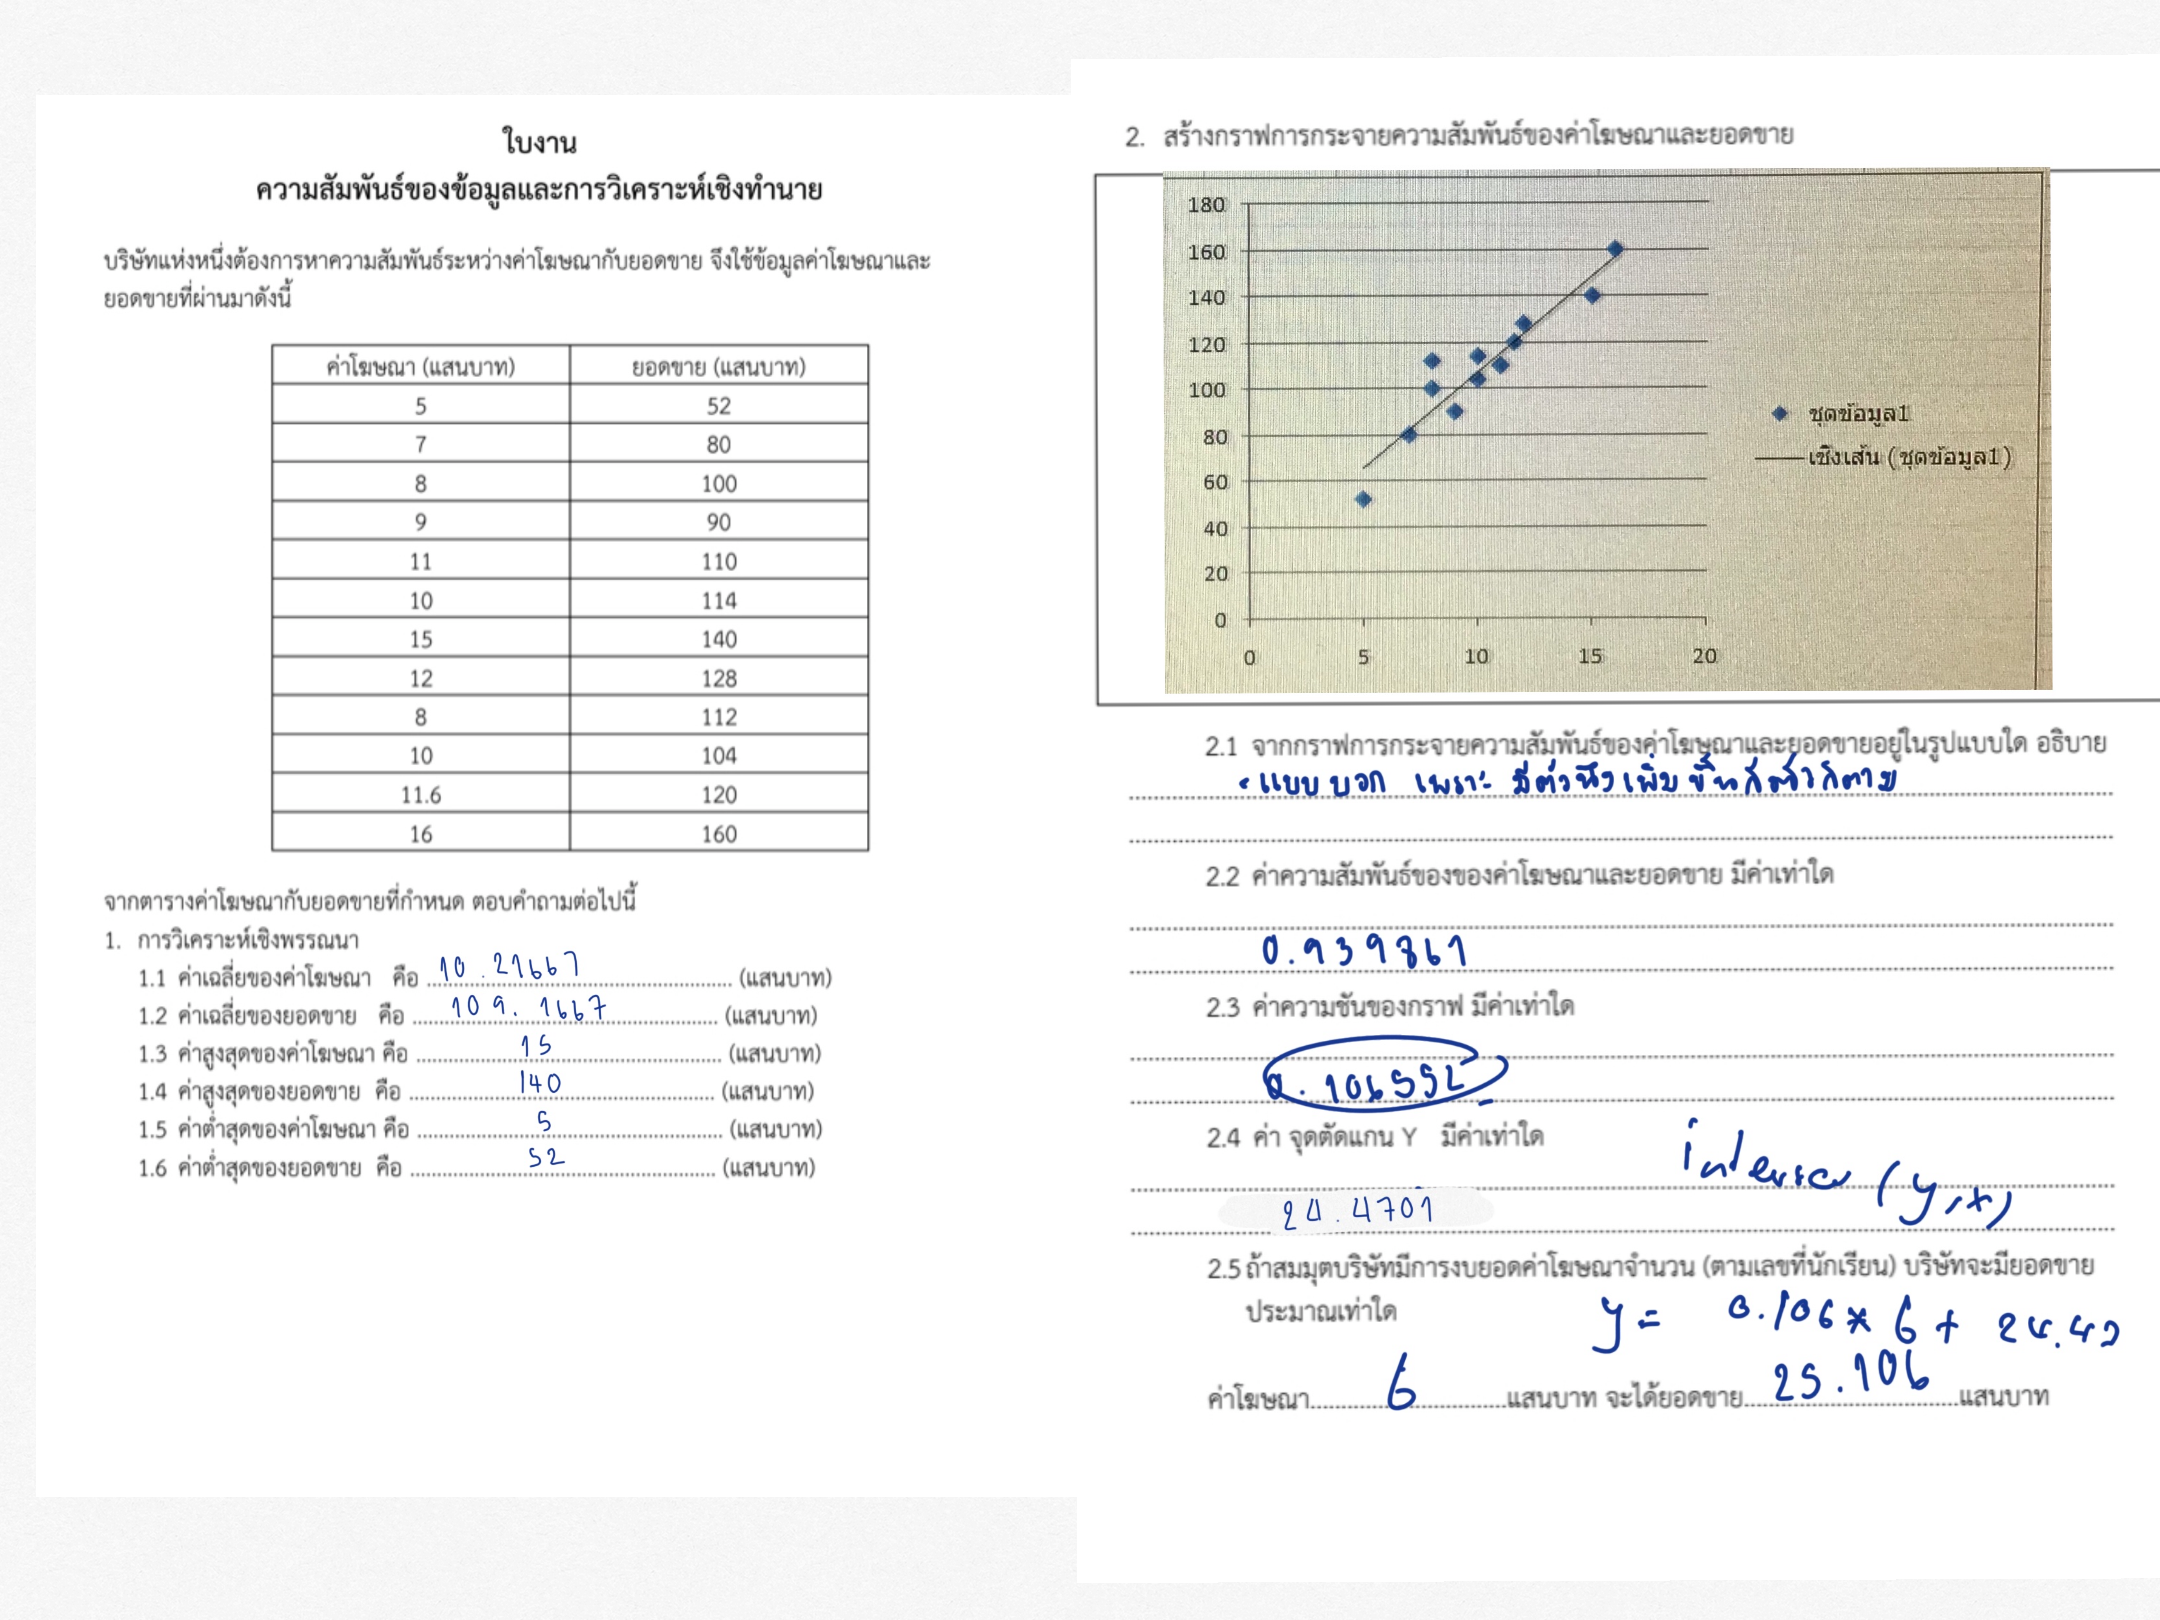 ใบงาน
ความสัมพันธ์ของข้อมูลและการวิเคราะห์เชิงทำนาย
บริษัทแห่งหนึ่งต้องการหาความสัมพันธ์ระหว่างค่าโฆษณากับยอดขาย จึงใช้ข้อมูลค่าโฆษณาและ
ยอดขายที่ผ่านมาดังนี้
ค่าโฆษณา (แสนบาท) ยอดขาย (แสนบาท)
5 52
7 80
8 100
9 90
11 110
10 114
15 140
12 128
8 112
10 104
11.6 120
16 160
จากตารางค่าโฆษณากับยอดขายที่กำหนด ตอบคำถามต่อไปนี้
1. การวิเคราะห์เชิงพรรณนา
1.1 ค่าเฉลี่ยของค่าโฆษณา คือ 10.21667 (แสนบาท)
1.2 ค่าเฉลี่ยของยอดขาย คือ 109.1667 (แสนบาท)
1.3 ค่าสูงสุดของค่าโฆษณา คือ 15 (แสนบาท)
1.4 ค่าสูงสุดของยอดขาย คือ 140 (แสนบาท)
1.5 ค่าต่ำสุดของค่าโฆษณา คือ 5 (แสนบาท)
1.6 ค่าต่ำสุดของยอดขาย คือ 52 (แสนบาท)
2. สร้างกราฟการกระจายความสัมพันธ์ของค่าโฆษณาและยอดขาย
180
160
140
120
100
80
60
40
20
0
0 5 10 15 20
ชุดข้อมูล1
เชิงเส้น (ชุดข้อมูล1)
2.1 จากกราฟการกระจายความสัมพันธ์ของค่าโฆษณาและยอดขายอยู่ในรูปแบบใด อธิบาย
แบบบอก เพราะ มีตัวนึงเพิ่มขึ้น
2.2 ค่าความสัมพันธ์ของของค่าโฆษณาและยอดขาย มีค่าเท่าใด
0.939861
2.3 ค่าความชันของกราฟ มีค่าเท่าใด
0.106552
2.4 ค่า จุดตัดแกน Y มีค่าเท่าใด
(y,x)
24.4701
2.5 ถ้าสมมุตบริษัทมีการงบยอดค่าโฆษณาจำนวน (ตามเลขที่นักเรียน) บริษัทจะมียอดขาย
ประมาณเท่าใด
y = 0.106 * 6 + 24.42
ค่าโฆษณา 6 แสนบาท จะได้ยอดขาย 25.106 แสนบาท